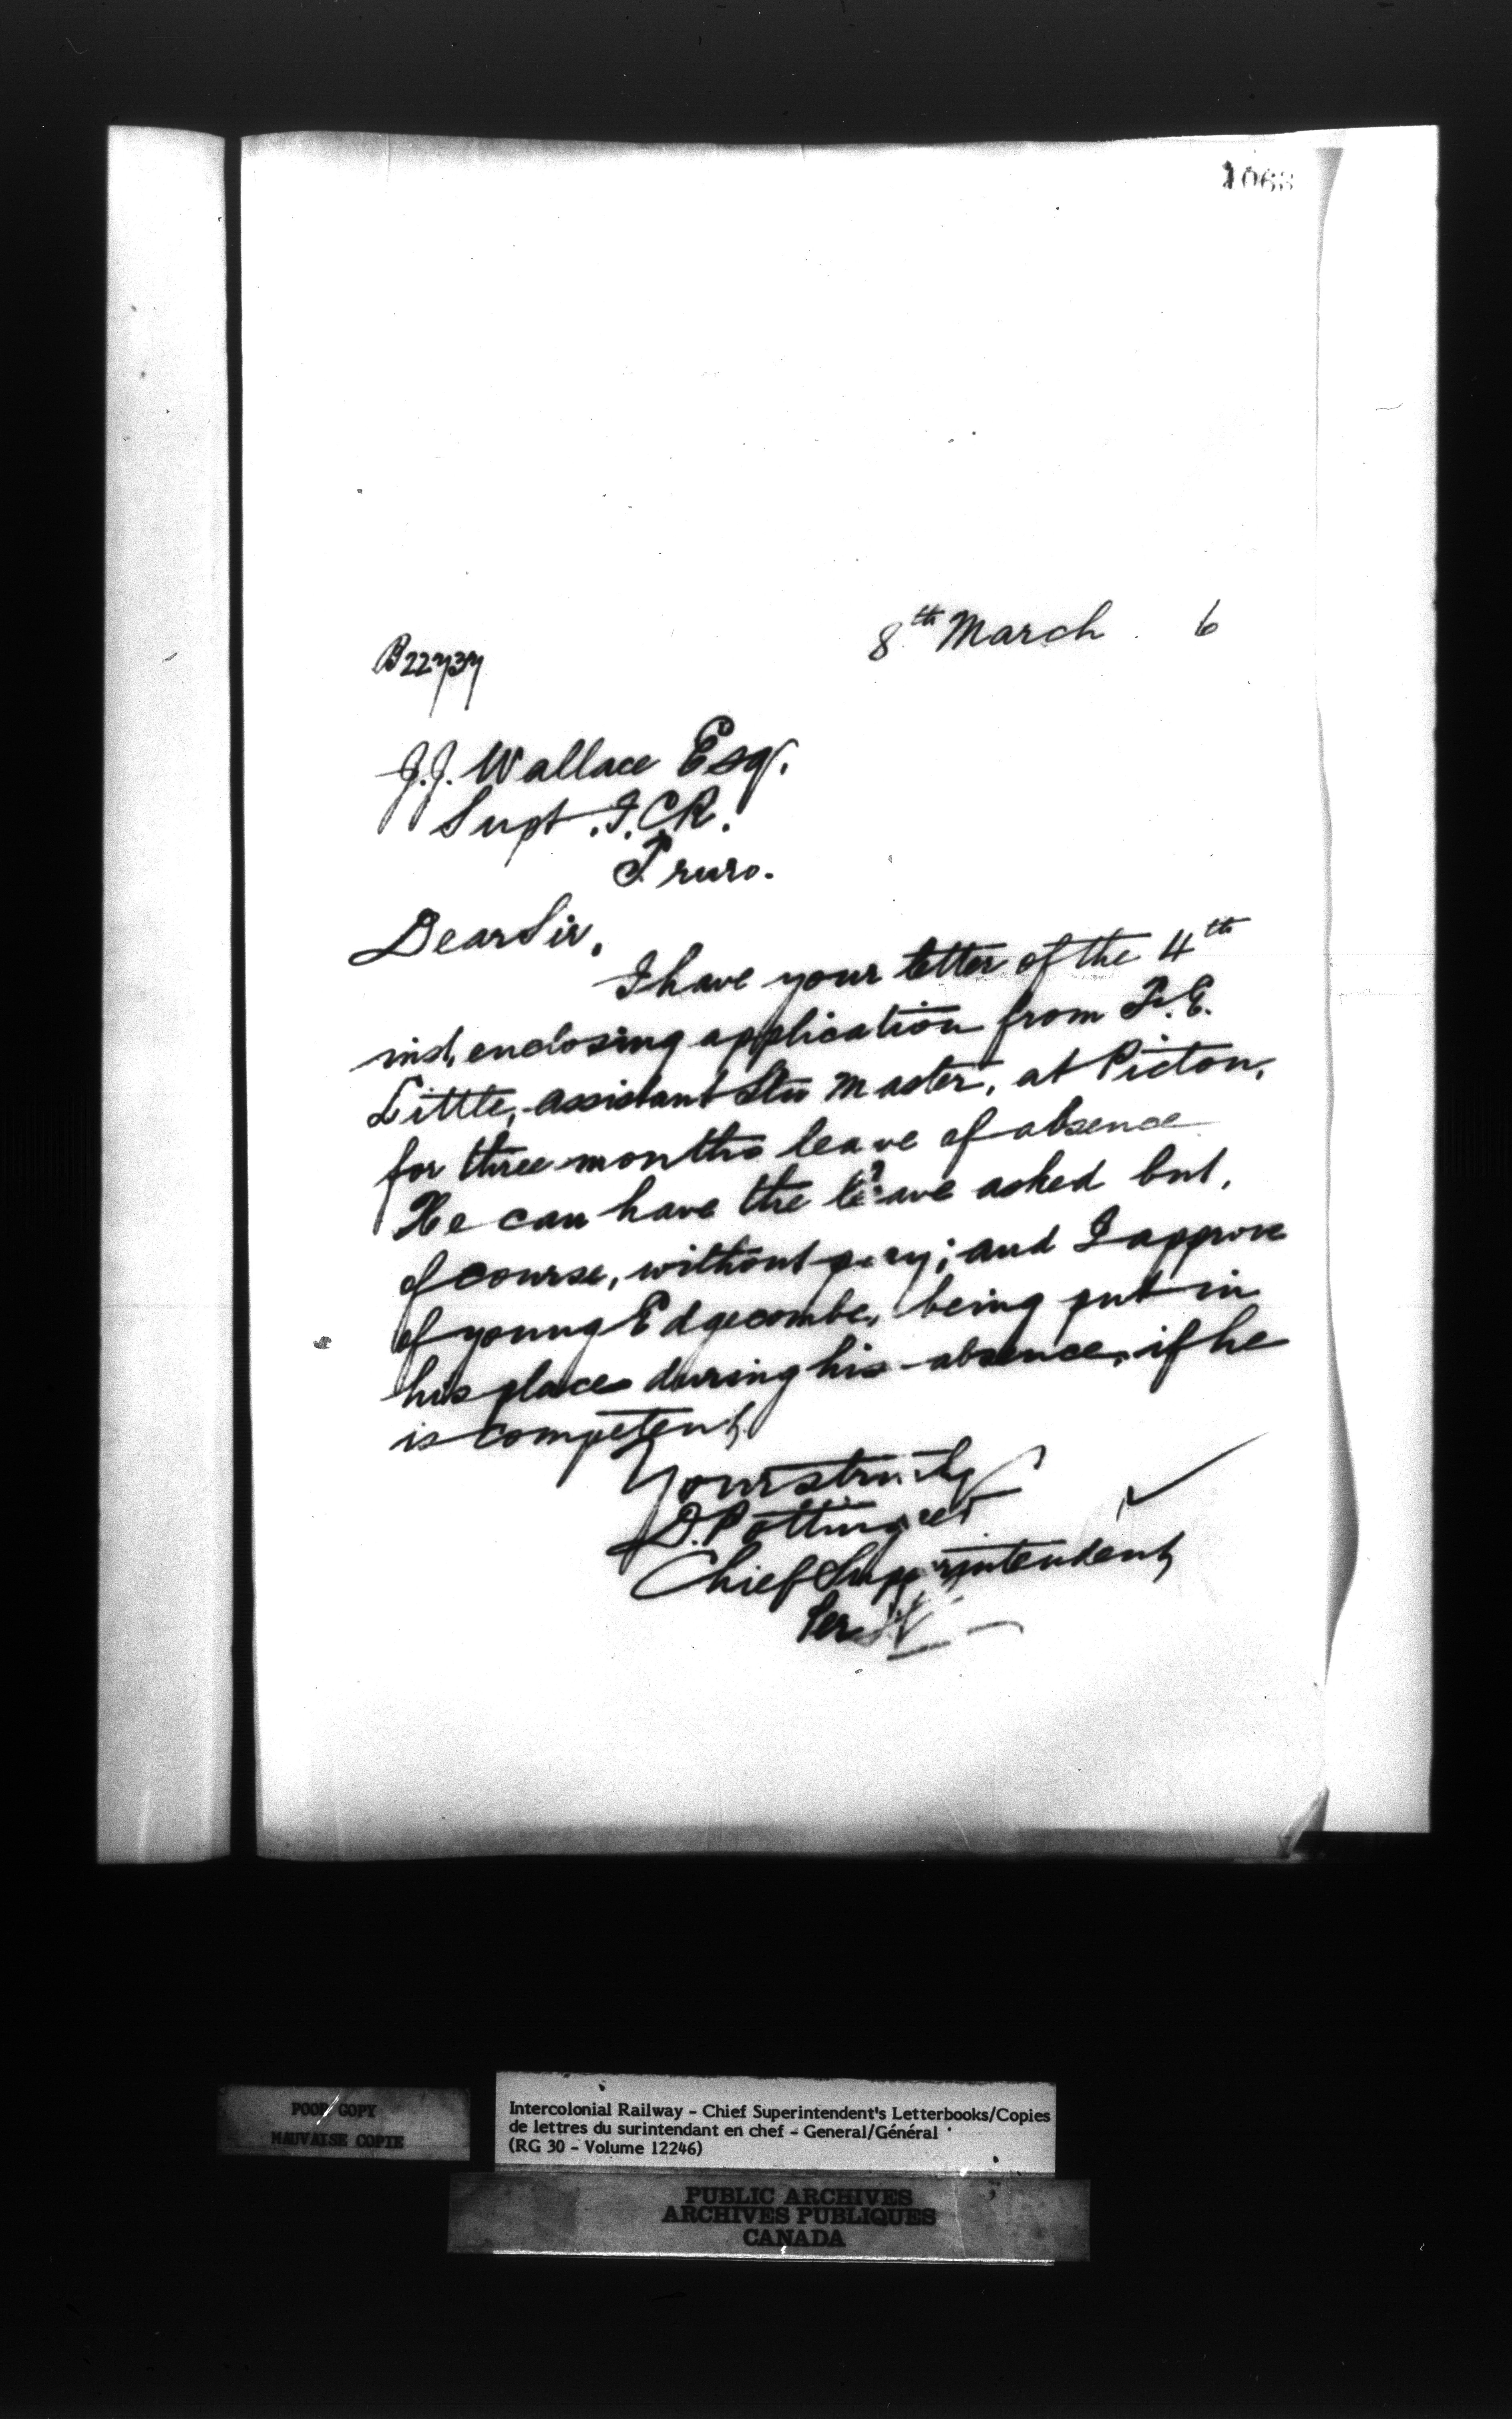 1068
8th March 6
B22737
J.J. Wallace Esq.
Supt. I.C.R.
Truro.
Dear Sir,
I have your letter of the 4th
inst, enclosing application from P.E.
Little, assistant Stn Master, at Pictou,
for three months leave of absence
He can have the leave asked but,
of course, without pay; and I approve
of young Edgecombe, being put in
his place during his absence, if he
is competent
Yours truly
D. Pottinger
Chief Superintendent
Per
POOR COPY
MAUVAISE COPIE
Intercolonial Railway - Chief Superintendent's Letterbooks/Copies
de lettres du surintendant en chef - General/Général
(RG 30 - Volume 12246)
PUBLIC ARCHIVES
ARCHIVES PUBLIQUES
CANADA